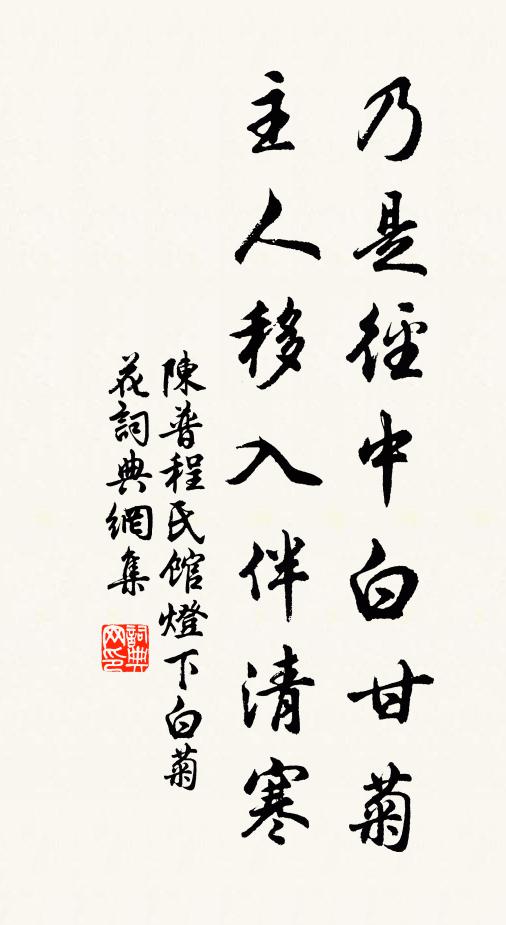 乃是徑中白甘菊
主人移入伴清寒
陳普程氏館燈下白菊
花詞典網集
詞典網印